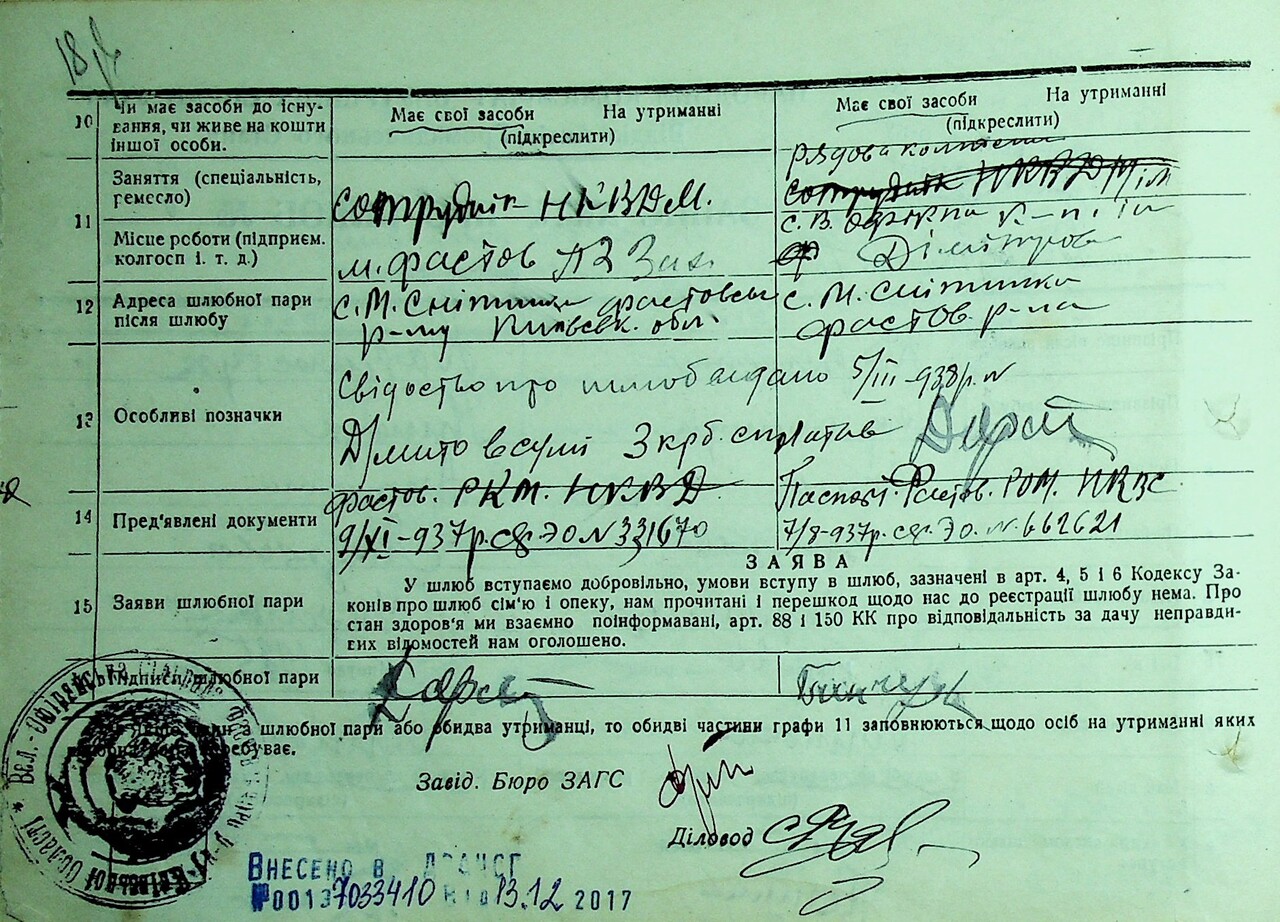 18
10 Чи має засоби до існу-
вання, чи живе на кошти
іншої особи.
Має свої засоби На утриманні
(підкреслити)
Має свої засоби На утриманні
(підкреслити)
11 Заняття (спеціальність,
ремесло)
сотрудник НКВДМ.
рядова колгоспу
сотрудник НКВДМ
Місце роботи (підприєм.
колгосп і. т. д.)
м. Фастов
Дімітрова
12 Адреса шлюбної пари
після шлюбу
с. М. Снітинка Фастовськ
р-ну Київськ. обл.
с. М. Снітинка
Фастов. р-на
13 Особливі позначки
Свідоство про шлюб видано 5/III-938р. №
Д/мито в сумі 3 крб. сплатив
14 Пред'явлені документи
Фастов. РКМ. НКВД
9/XI-937р. ЭО №331670
Паспорт. Фастов. РОМ. НКВС
7/8-937р. ЭО. №662621
15 Заяви шлюбної пари
ЗАЯВА
У шлюб вступаємо добровільно, умови вступу в шлюб, зазначені в арт. 4, 5 і 6 Кодексу За-
конів про шлюб сім'ю і опеку, нам прочитані і перешкод щодо нас до реєстрації шлюбу нема. Про
стан здоров'я ми взаємно поінформавані, арт. 88 і 150 КК про відповідальність за дачу неправди-
вих відомостей нам оголошено.
Підписи шлюбної пари
Якщо один з шлюбної пари або обидва утриманці, то обидві частини графи 11 заповнюються щодо осіб на утриманні яких
перебуває.
Завід. Бюро ЗАГС
Діловод
ВНЕСЕНО В ДРАЦСГ
№00137033410 від 13.12 2017